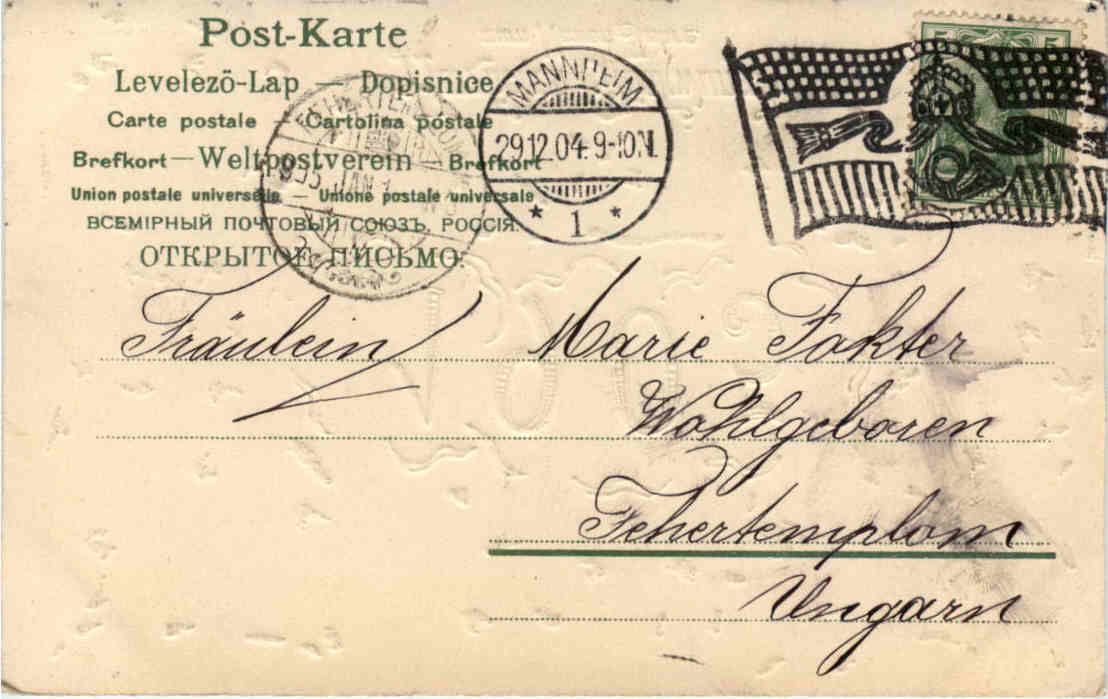 Post-Karte
Levelező-Lap — Dopisnice
Carte postale — Cartolina postale
Brefkort — Weltpostverein — Brefkort
Union postale universelle — Unione postale universale
ВСЕМІРНЫЙ ПОЧТОВЫЙ СОЮЗЪ. РОССІЯ.
ОТКРЫТОЕ ПИСЬМО.
MANNHEIM
29.12.04. 9-10N.
* 1 *
5 5
Fräulein Marie Fakter
Wohlgeboren
Fehertemplom
Ungarn